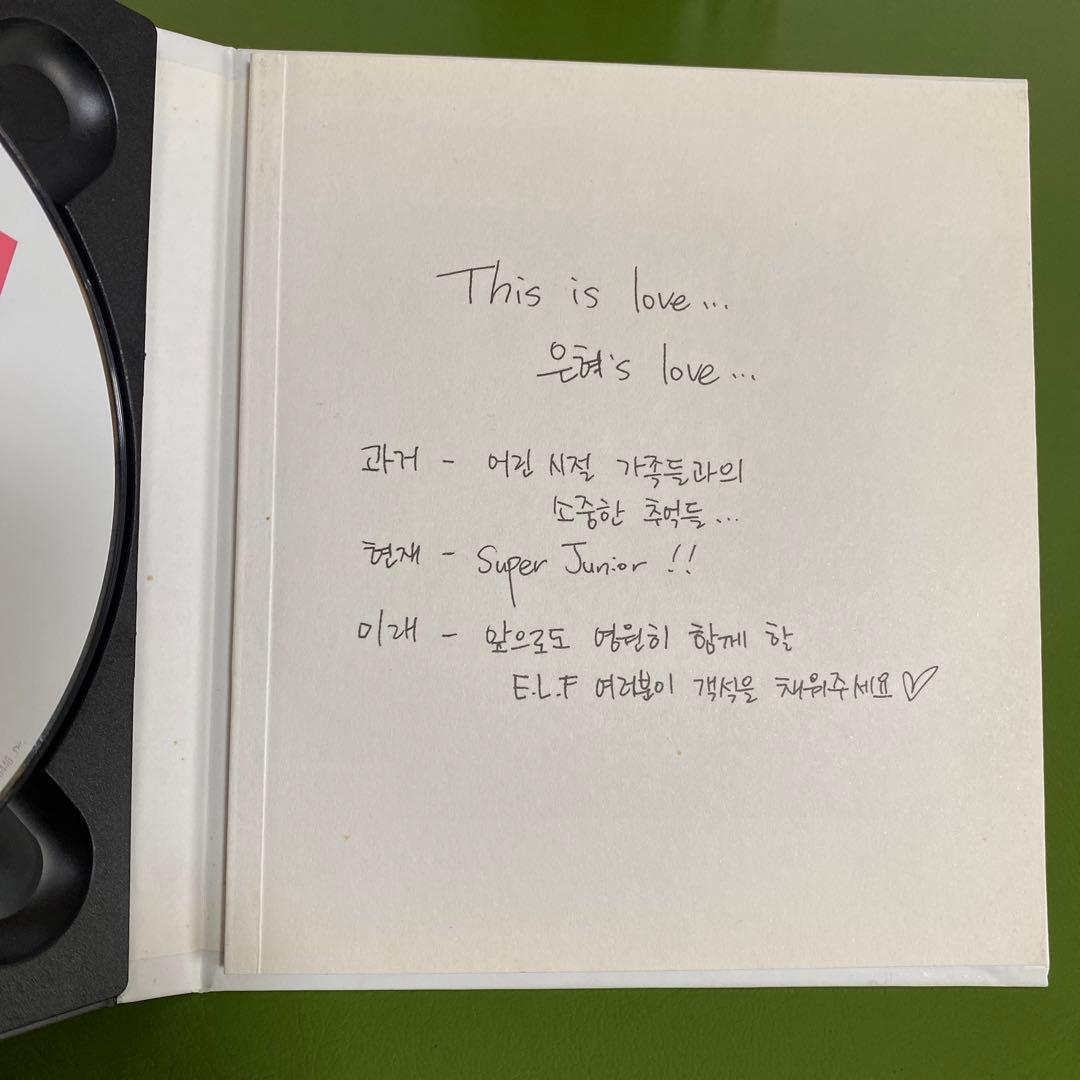 This is love...
은혁's love...
과거 - 어린 시절 가족들과의
소중한 추억들...
현재 - Super Junior !!
미래 - 앞으로도 영원히 함께 할
E.L.F 여러분이 객석을 채워주세요♡